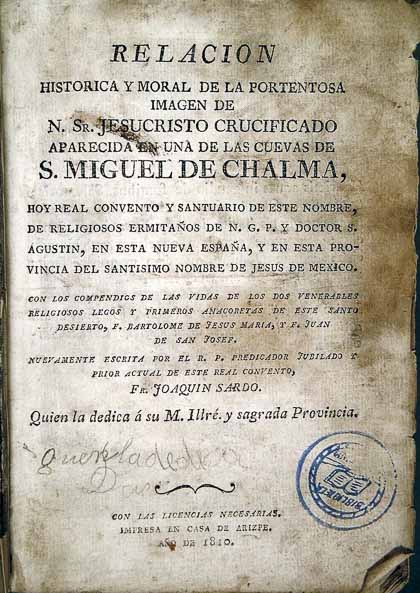 RELACION
HISTORICA Y MORAL DE LA PORTENTOSA
IMAGEN DE
N. SR. JESUCRISTO CRUCIFICADO
APARECIDA EN UNA DE LAS CUEVAS DE
S. MIGUEL DE CHALMA,
HOY REAL CONVENTO Y SANTUARIO DE ESTE NOMBRE,
DE RELIGIOSOS ERMITAÑOS DE N. G. P. Y DOCTOR S.
AGUSTIN, EN ESTA NUEVA ESPAÑA, Y EN ESTA PRO-
VINCIA DEL SANTISIMO NOMBRE DE JESUS DE MEXICO.
CON LOS COMPENDIOS DE LAS VIDAS DE LOS DOS VENERABLES
RELIGIOSOS LEGOS Y PRIMEROS ANACORETAS DE ESTE SANTO
DESIERTO, F. BARTOLOME DE JESUS MARIA, Y F. JUAN
DE SAN JOSEF.
NUEVAMENTE ESCRITA POR EL R. P. PREDICADOR JUBILADO Y
PRIOR ACTUAL DE ESTE REAL CONVENTO,
FR. JOAQUIN SARDO.
Quien la dedica á su M. Illré. y sagrada Provincia.
CON LAS LICENCIAS NECESARIAS.
IMPRESA EN CASA DE ARIZPE.
AÑO DE 1810.